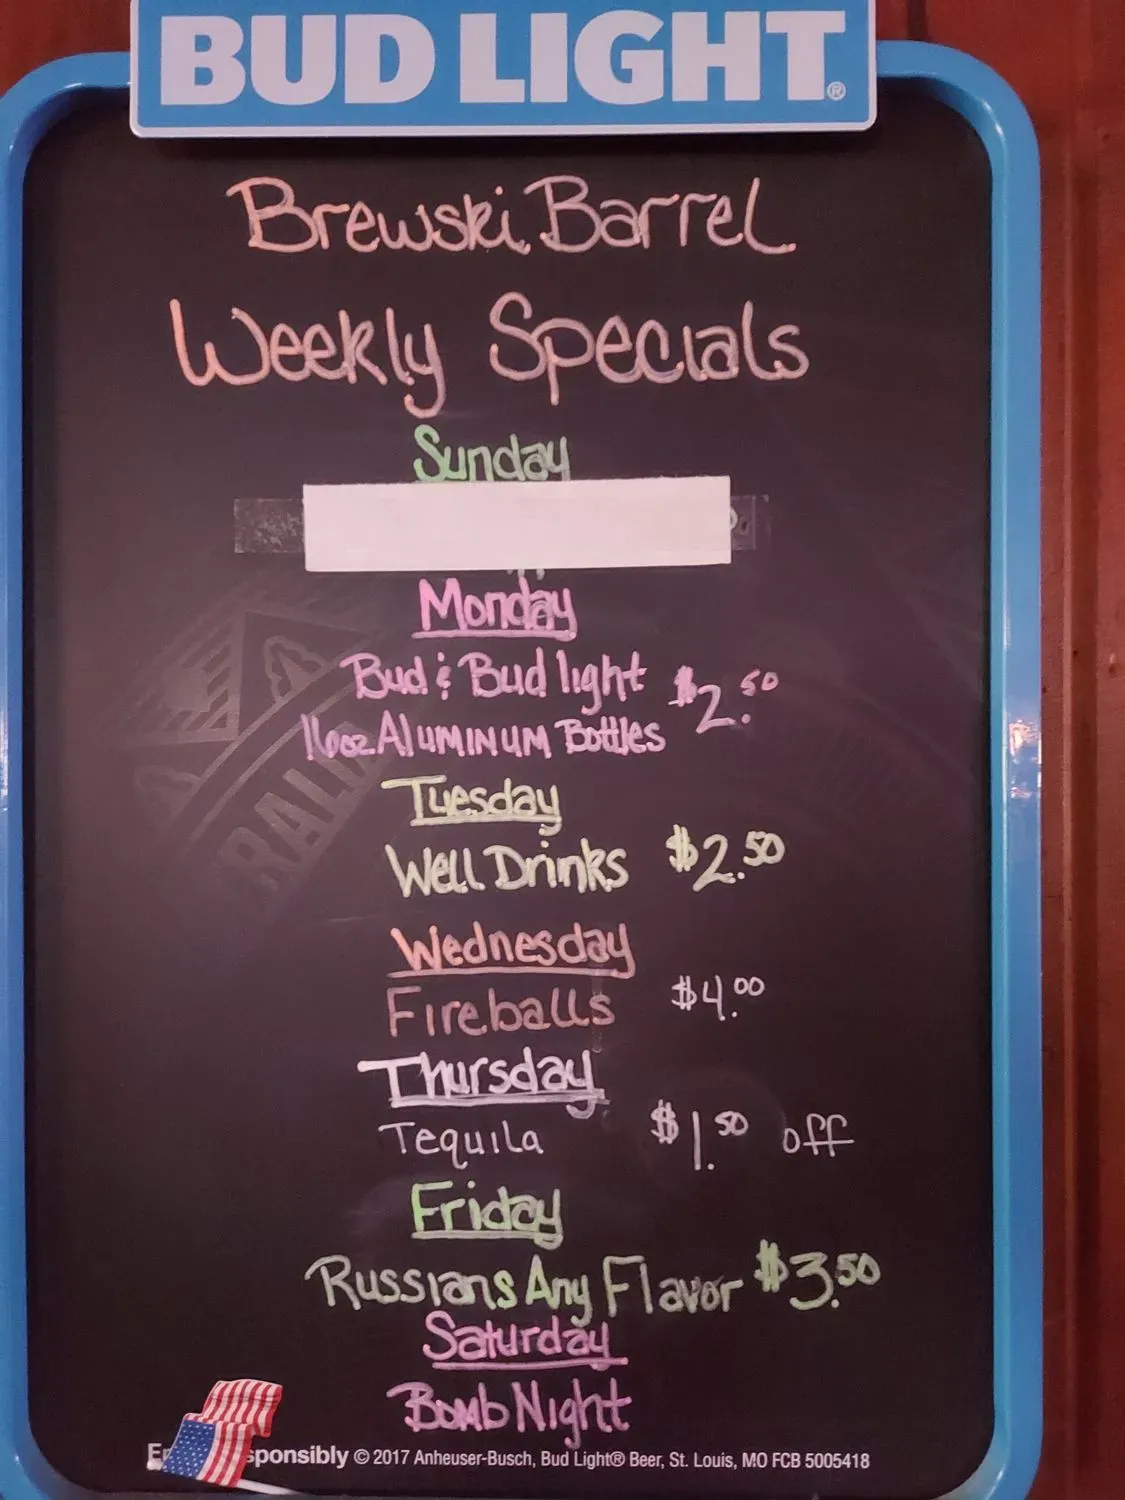 BUD LIGHT®
Brewski Barrel
Weekly Specials
Sunday
Monday
Bud & Bud light $2.50
16oz Aluminum Bottles
Tuesday
Well Drinks $2.50
Wednesday
Fireballs $4.00
Thursday
Tequila $1.50 off
Friday
Russians Any Flavor $3.50
Saturday
Bomb Night
© 2017 Anheuser-Busch, Bud Light® Beer, St. Louis, MO FCB 5005418